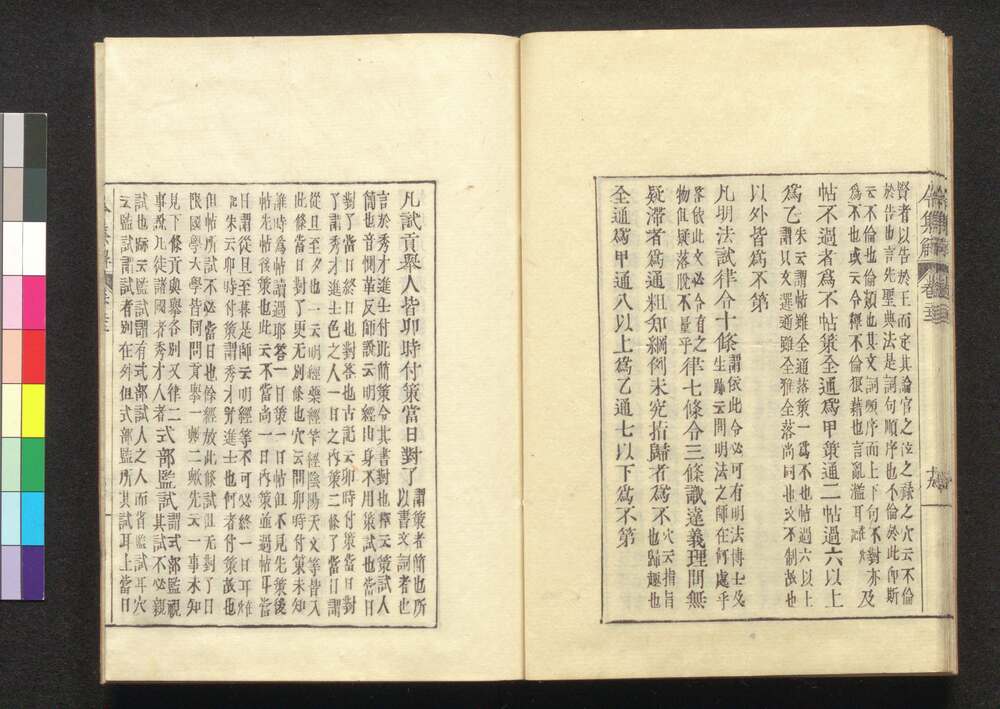 賢者以告於王而定其論官之泣之祿之穴云不倫
於告也言先聖典法是詞句順序也不倫於此卽斯
云不倫也倫類也其文詞順序而上下句不對亦及
爲不也或云令釋不倫猥藉也言亂濫耳
帖不過者爲不帖策全通爲甲策通二帖過六以上
爲乙
朱云謂帖雖全通落策一爲不也帖過六以上
謂以文選通雖全雅全落尚同也文不制故也
以外皆爲不第
凡明法試律令十條
謂依此令必可有明法博士及
生跡云問明法之師在何處乎
答依此文必令有之
物但疑落脫不量乎
律七條令三條識達義理問無
疑滯者爲通粗知綱例未究指歸者爲不
穴云指指
也歸趣也
全通爲甲通八以上爲乙通七以下爲不第
令集解
卷二十二
凡試貢擧人皆卯時付策當日對了
謂策者簡也所
以書文詞者也
言於秀才進士付此簡策令其書對也釋云策試人
簡也音惻革反師說云明經出身不用策試也當日
對了當日終日也對答也古記云卯時付策當日對
了謂秀才進士色之人一日之內策二條了當日謂
從旦至夕也一云明經藥經等經陰陽天文等皆入
此條當日對了更无別條也穴云問卯時付策未知
誰時爲帖讀過耶答一日策一日帖但不見先策後
帖先帖後策也此云不當尚一日內策並過帖耳當
日謂從旦至暮是師云明經等不可必終一日耳
朱云卯時付策謂秀才等進士也何者付策故也
但帖所試不必當日也餘經放此條試但无對了日
限國學大學皆同問貢擧一
見下條貢處擧各別又律二
事說凡徒諸國者秀才人者
式部監試
謂式部監視
其試不必親
試也跡云監試謂有式部試人之人而省監試耳穴
云監試謂試者別在外但式部監所其試耳上當日